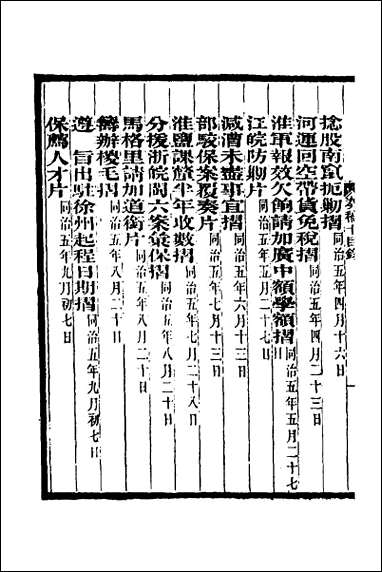 卷十目錄
捻股南竄扼剿摺 同治五年四月十六日
河運回空帶貨免稅摺 同治五年四月二十三日
淮軍報效欠餉請加廣中額學額摺 同治五年五月二十七日
江皖防剿片 同治五年五月二十七日
減漕未盡事宜摺 同治五年六月十三日
部駁保案覆奏片 同治五年七月十三日
淮鹽課釐半年收數摺 同治五年七月二十八日
分援浙皖閩六案彙保摺 同治五年八月二十日
馬格里請加道銜片 同治五年八月二十日
籌辦毛摺 同治五年八月二十日
遵 旨出駐徐州起程日期摺 同治五年九月初七日
保薦人才片 同治五年九月初七日